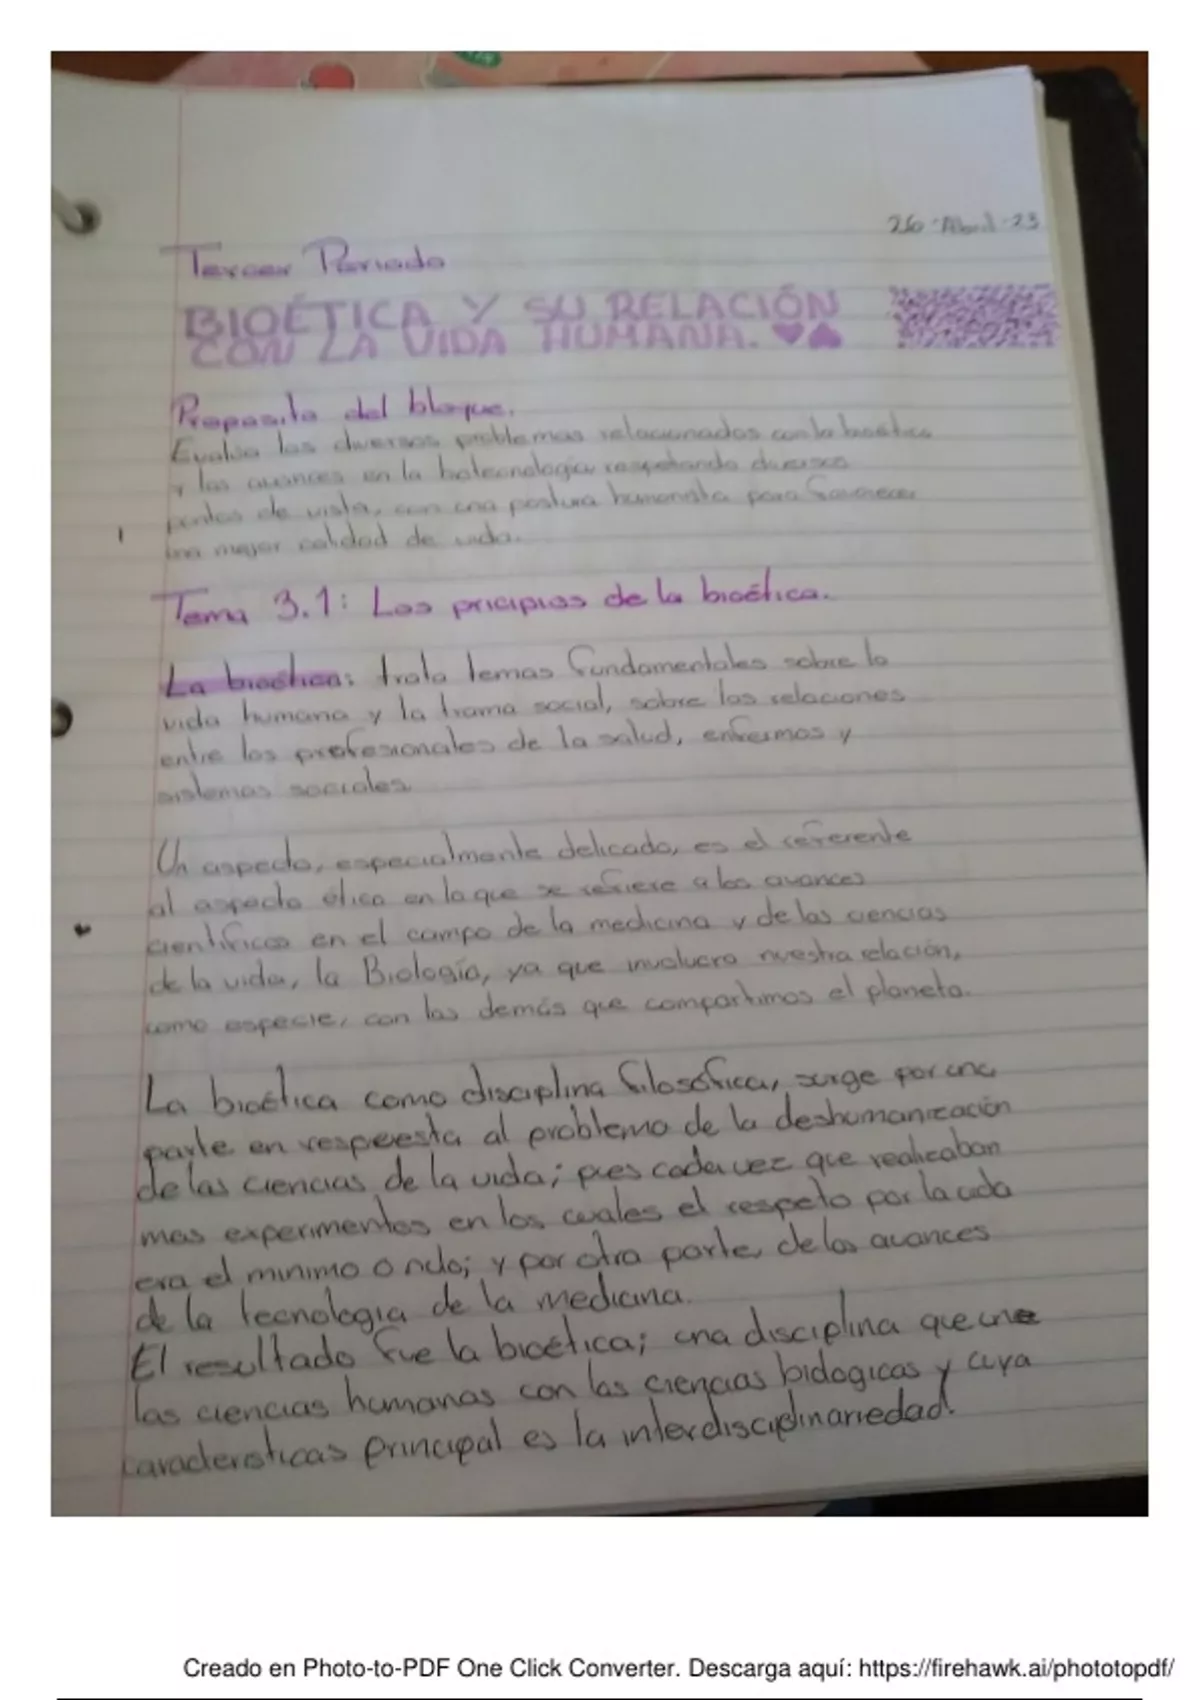 26-Abril-23
Tercer Periodo
BIOÉTICA Y SU RELACIÓN
CON LA VIDA HUMANA.
Proposito del bloque.
Evalúa los diversos problemas relacionados con la bioética
y los avances en la biotecnología respetando diversos
puntos de vista, con una postura humanista para favorecer
una mejor calidad de vida.
Tema 3.1: Los pricipios de la bioética.
La bioética: trata temas fundamentales sobre la
vida humana y la trama social, sobre las relaciones
entre los profesionales de la salud, enfermos y
sistemas sociales.
Un aspecto, especialmente delicado, es el referente
al aspecto ético en la que se refiere a los avances
cientificos en el campo de la medicina y de las ciencias
de la vida, la Biología, ya que involucra nuestra relación,
como especie, con las demás que compartimos el planeta.
La bioética como disciplina filosófica, surge por una
parte en respuesta al problema de la deshumanización
de las ciencias de la vida; pues cada vez que realizaban
mas experimentos en los cuales el respeto por la vida
era el minimo o nulo; y por otra parte, de los avances
de la tecnologia de la medicina.
El resultado fue la bioética; una disciplina que une
las ciencias humanas con las ciencias biologicas y cuya
caracteristicas principal es la interdisciplinariedad.
Creado en Photo-to-PDF One Click Converter. Descarga aquí: https://firehawk.ai/phototopdf/